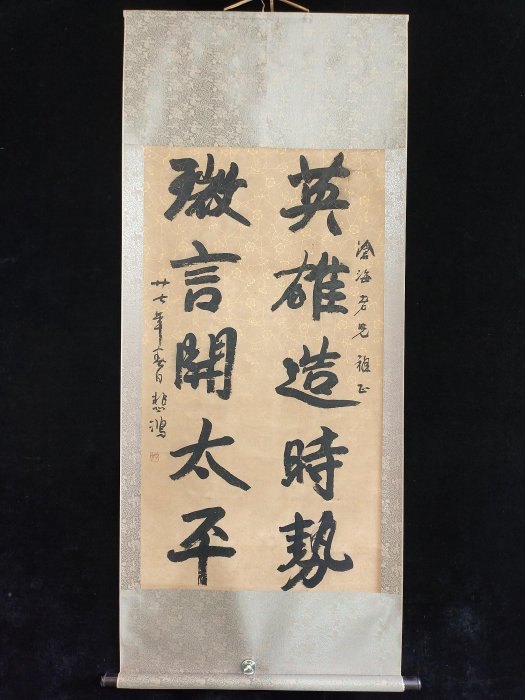 滄海吾兄 雅正
英雄造時勢
微言開太平
廿七年春日 悲鴻